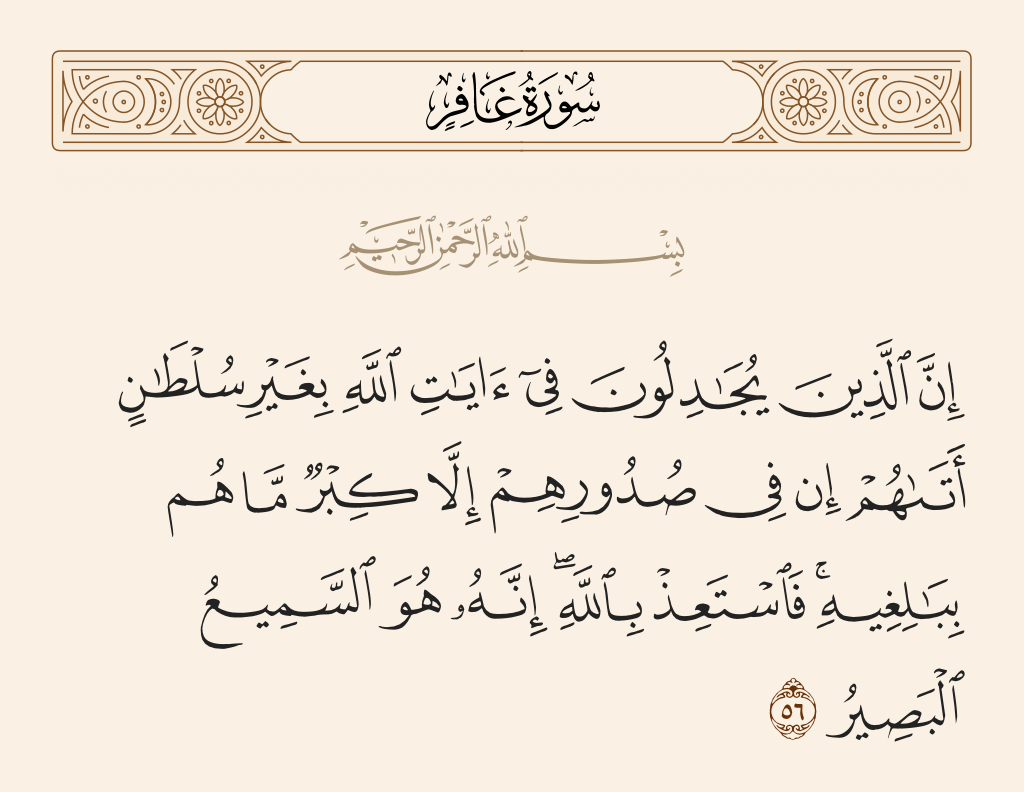 سُورَةُ غَافِرٍ
بِسْمِ ٱللَّهِ ٱلرَّحْمَٰنِ ٱلرَّحِيمِ
إِنَّ ٱلَّذِينَ يُجَٰدِلُونَ فِىٓ ءَايَٰتِ ٱللَّهِ بِغَيْرِ سُلْطَٰنٍ
أَتَىٰهُمْ إِن فِى صُدُورِهِمْ إِلَّا كِبْرٌ مَّا هُم
بِبَٰلِغِيهِ ۚ فَٱسْتَعِذْ بِٱللَّهِ ۖ إِنَّهُۥ هُوَ ٱلسَّمِيعُ
ٱلْبَصِيرُ ٥٦